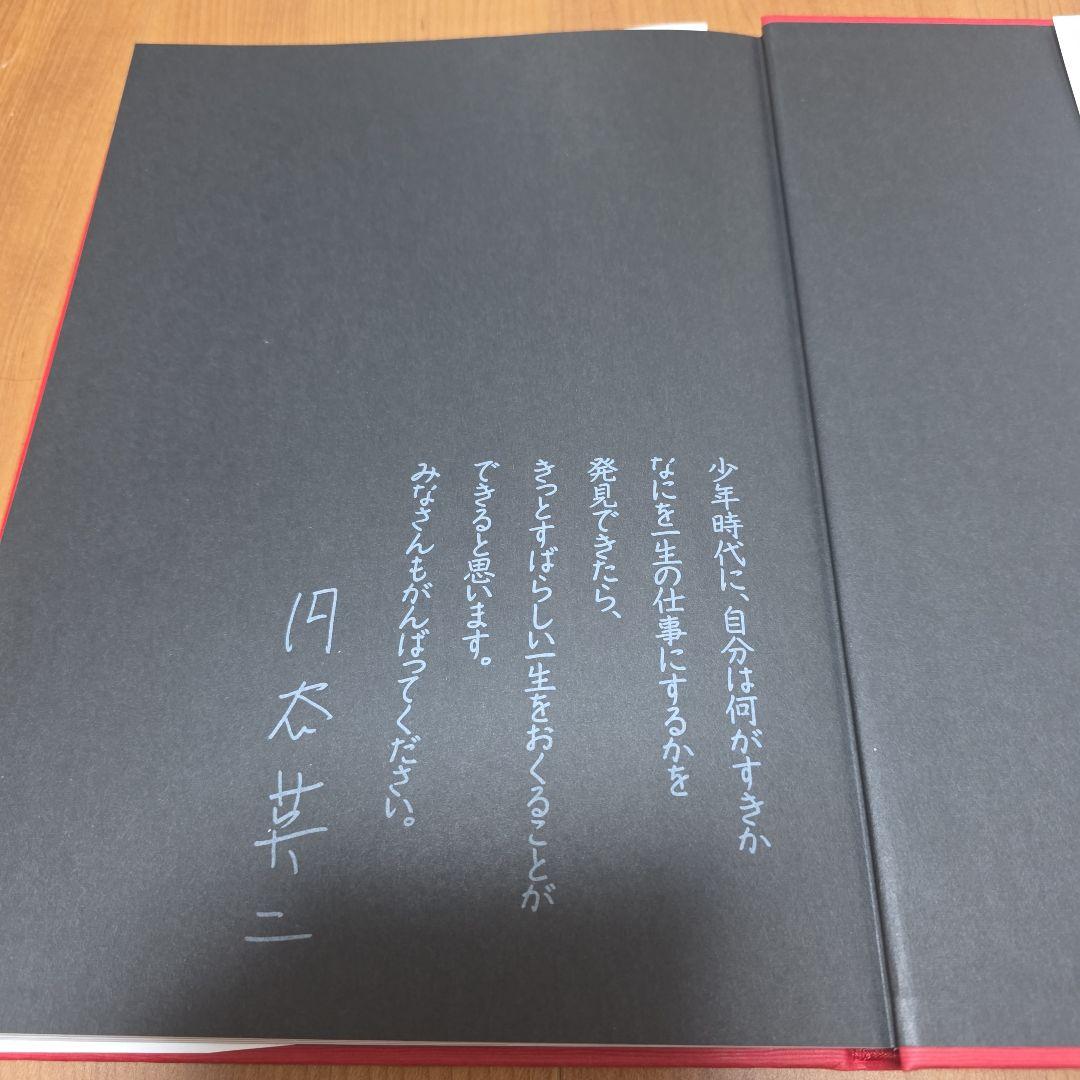 少年時代に、自分は何がすきか
なにを一生の仕事にするかを
発見できたら、
きっとすばらしい一生をおくることが
できると思います。
みなさんもがんばってください。
円谷英二